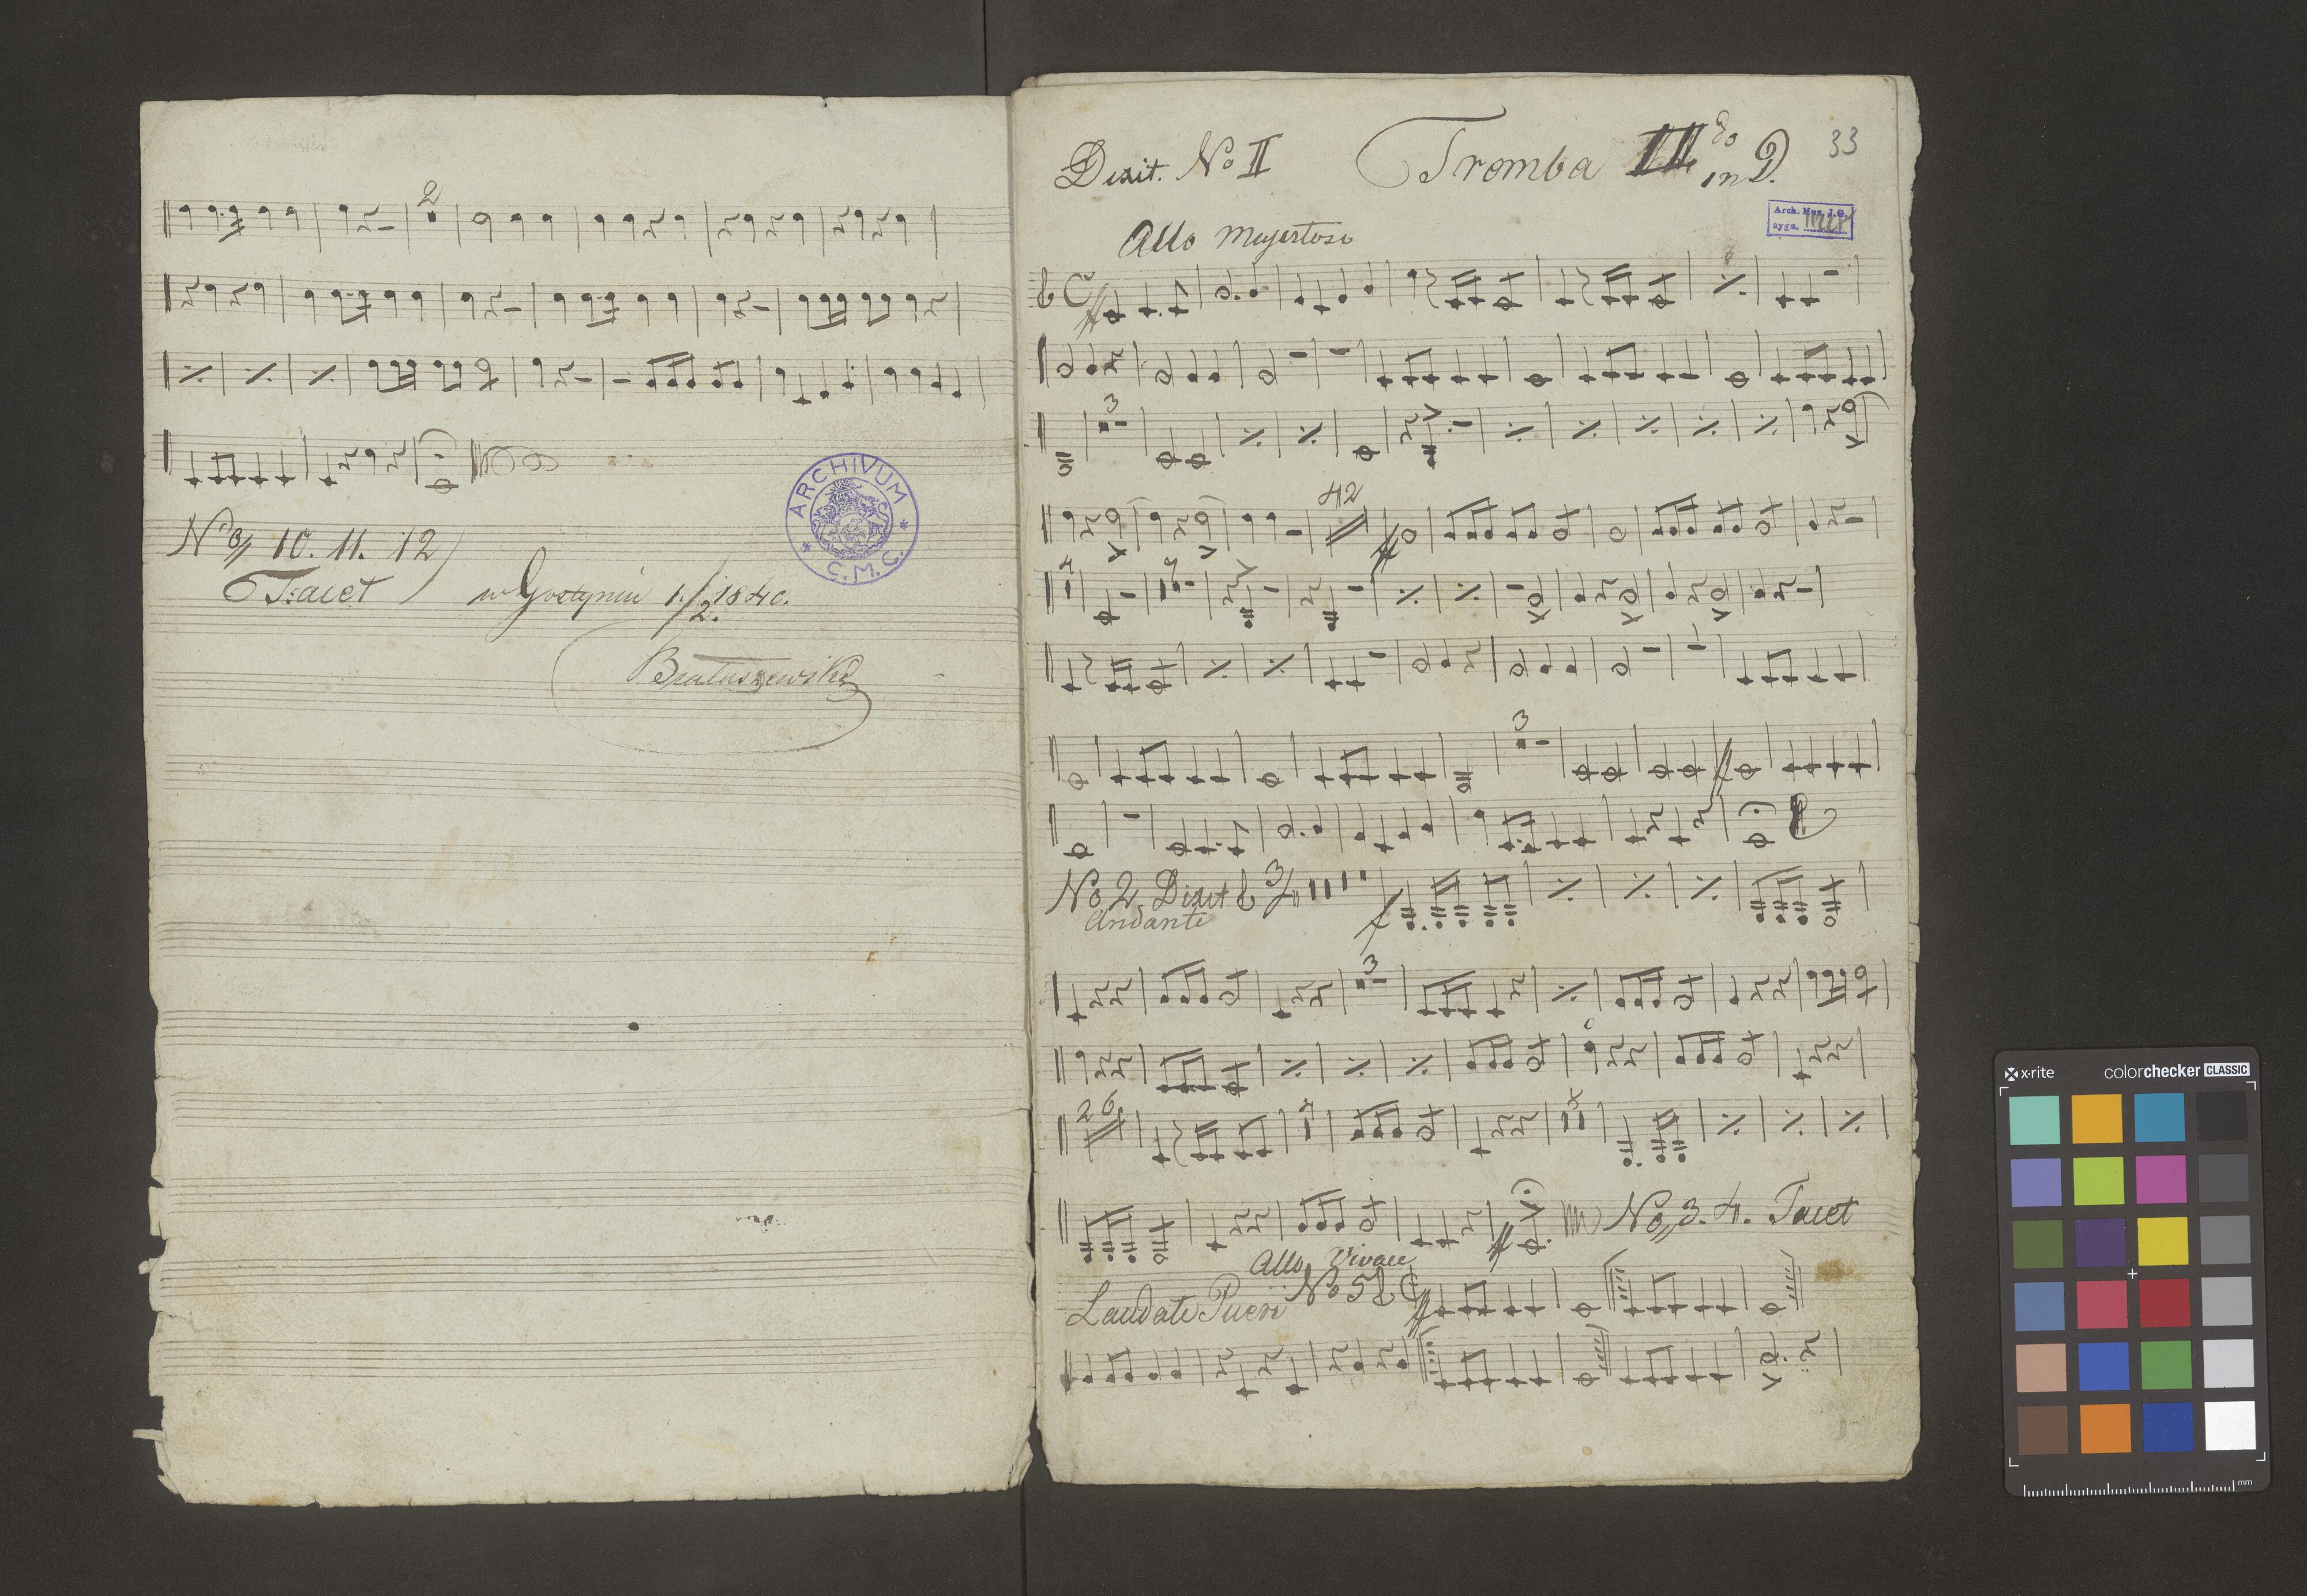 2
No 9 10. 11. 12
Tacet
w Gostyniu 1./2. 1840.
Bratuszewski
ARCHIVUM
* C.M.G. *
33
Dixit. No II Tromba II do in D.
Arch. Mus. J.G.
sygn.
Allo Majestoso
ff
3
42
ff
3
f
No 2. Dixit 3/4 f
Andante
3
26
ff No 3. 4. Tacet
Allo Vivace
Laudate Pueri No 5 ff
x·rite colorchecker CLASSIC
mm